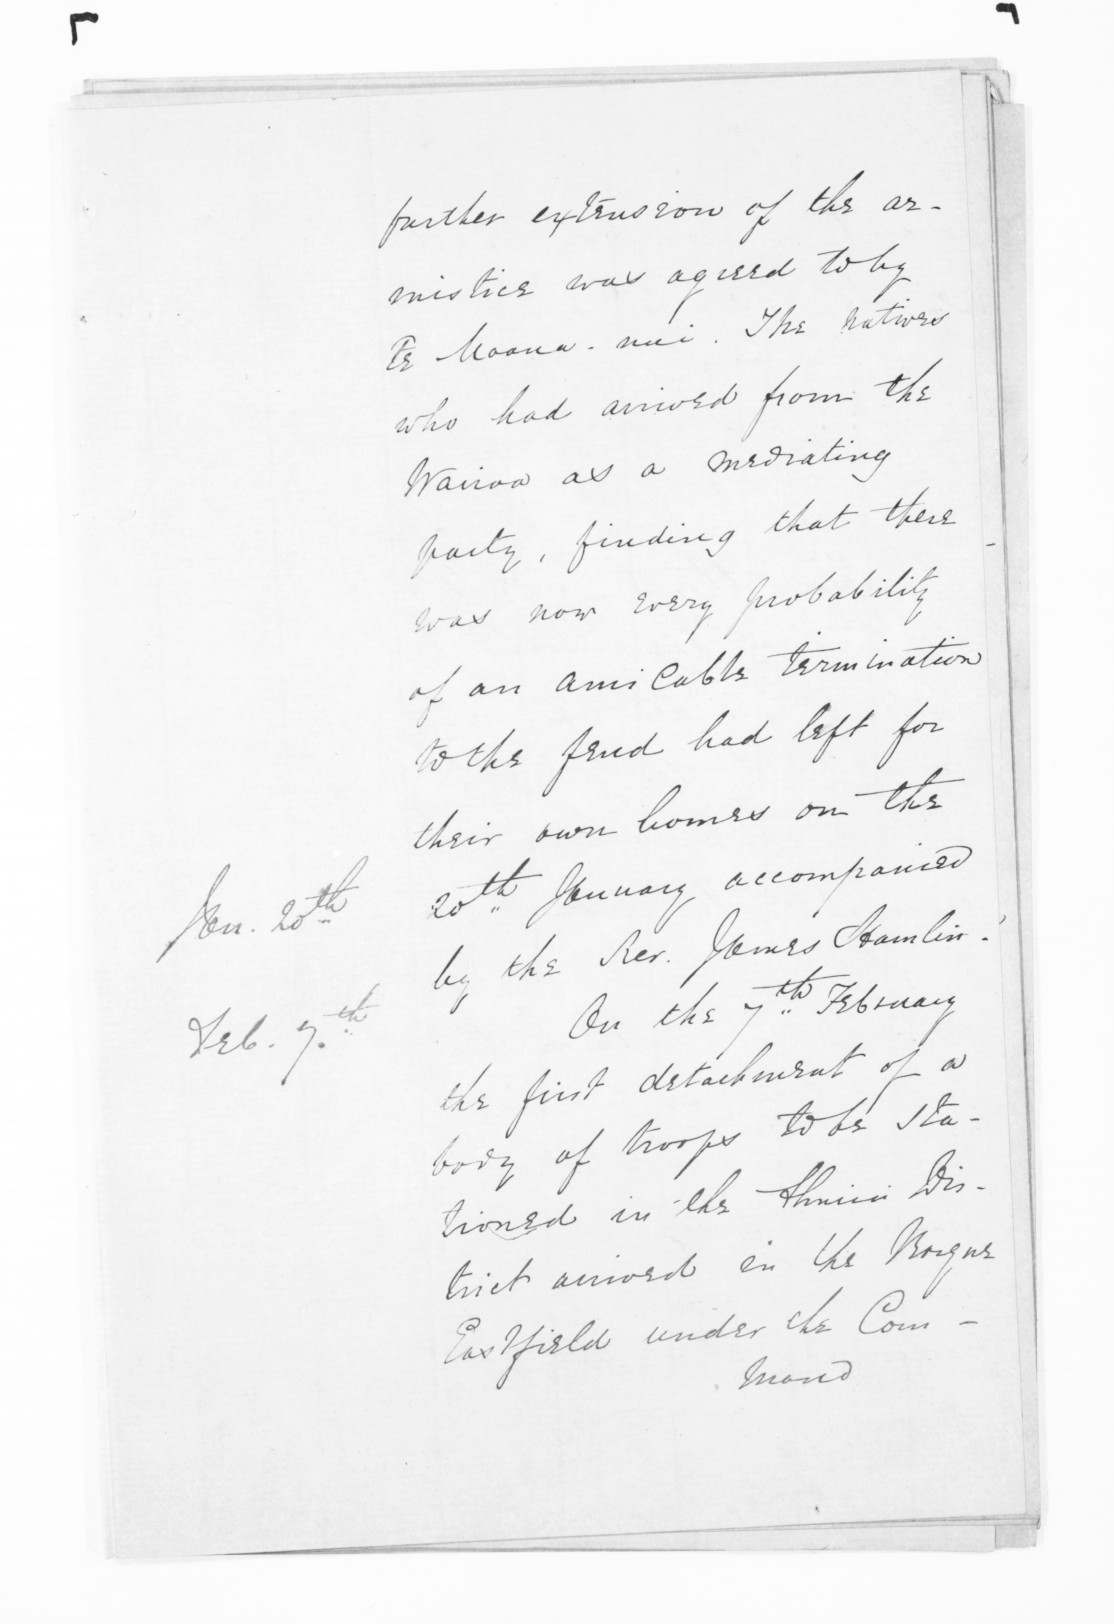 further extension of the ar-
mistice was agreed to by
Te Moana-nui. The Natives
who had arrived from the
Wairoa as a mediating
party, finding that there
was now every probability
of an amicable termination
to the feud had left for
their own homes on the
Jan. 20th
20th January accompanied
by the Rev. James Hamlin.
Feb. 7th
On the 7th February
the first detachment of a
body of troops to be sta-
tioned in the Ahuriri Dis-
trict arrived in the Barque
Eastfield under the Com-
mand